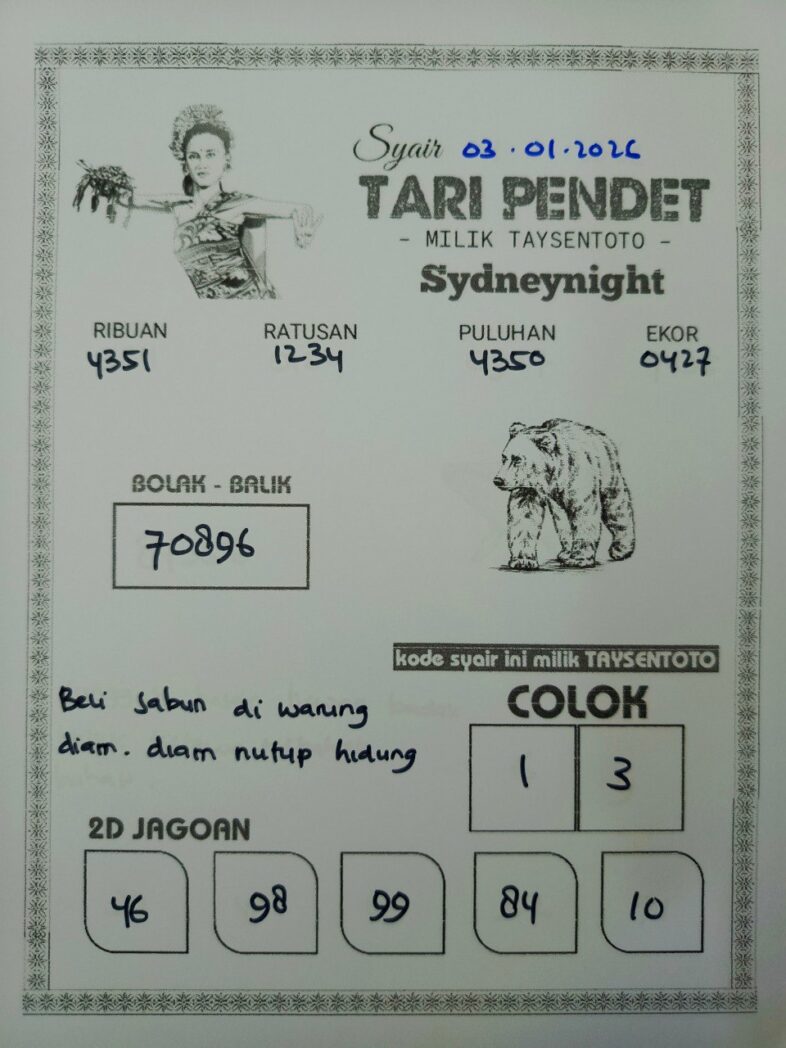 Syair 03.01.2026
TARI PENDET
- MILIK TAYSENTOTO -
Sydneynight
RIBUAN RATUSAN PULUHAN EKOR
4351 1234 4350 0427
BOLAK - BALIK
70896
kode syair ini milik TAYSENTOTO
Beli sabun di warung
diam. diam nutup hidung
COLOK
1 3
2D JAGOAN
46 98 99 84 10